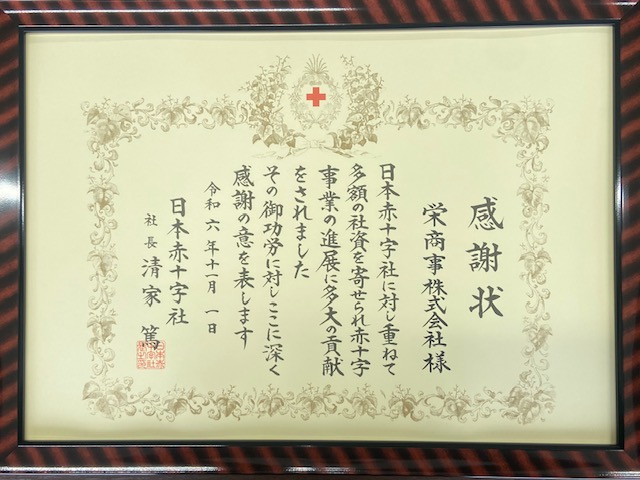 感謝状
栄商事株式会社様
日本赤十字社に対し重ねて
多額の社資を寄せられ赤十字
事業の進展に多大の貢献
をされました
その御功労に対しここに深く
感謝の意を表します
令和六年十一月一日
日本赤十字社
社長 清家篤